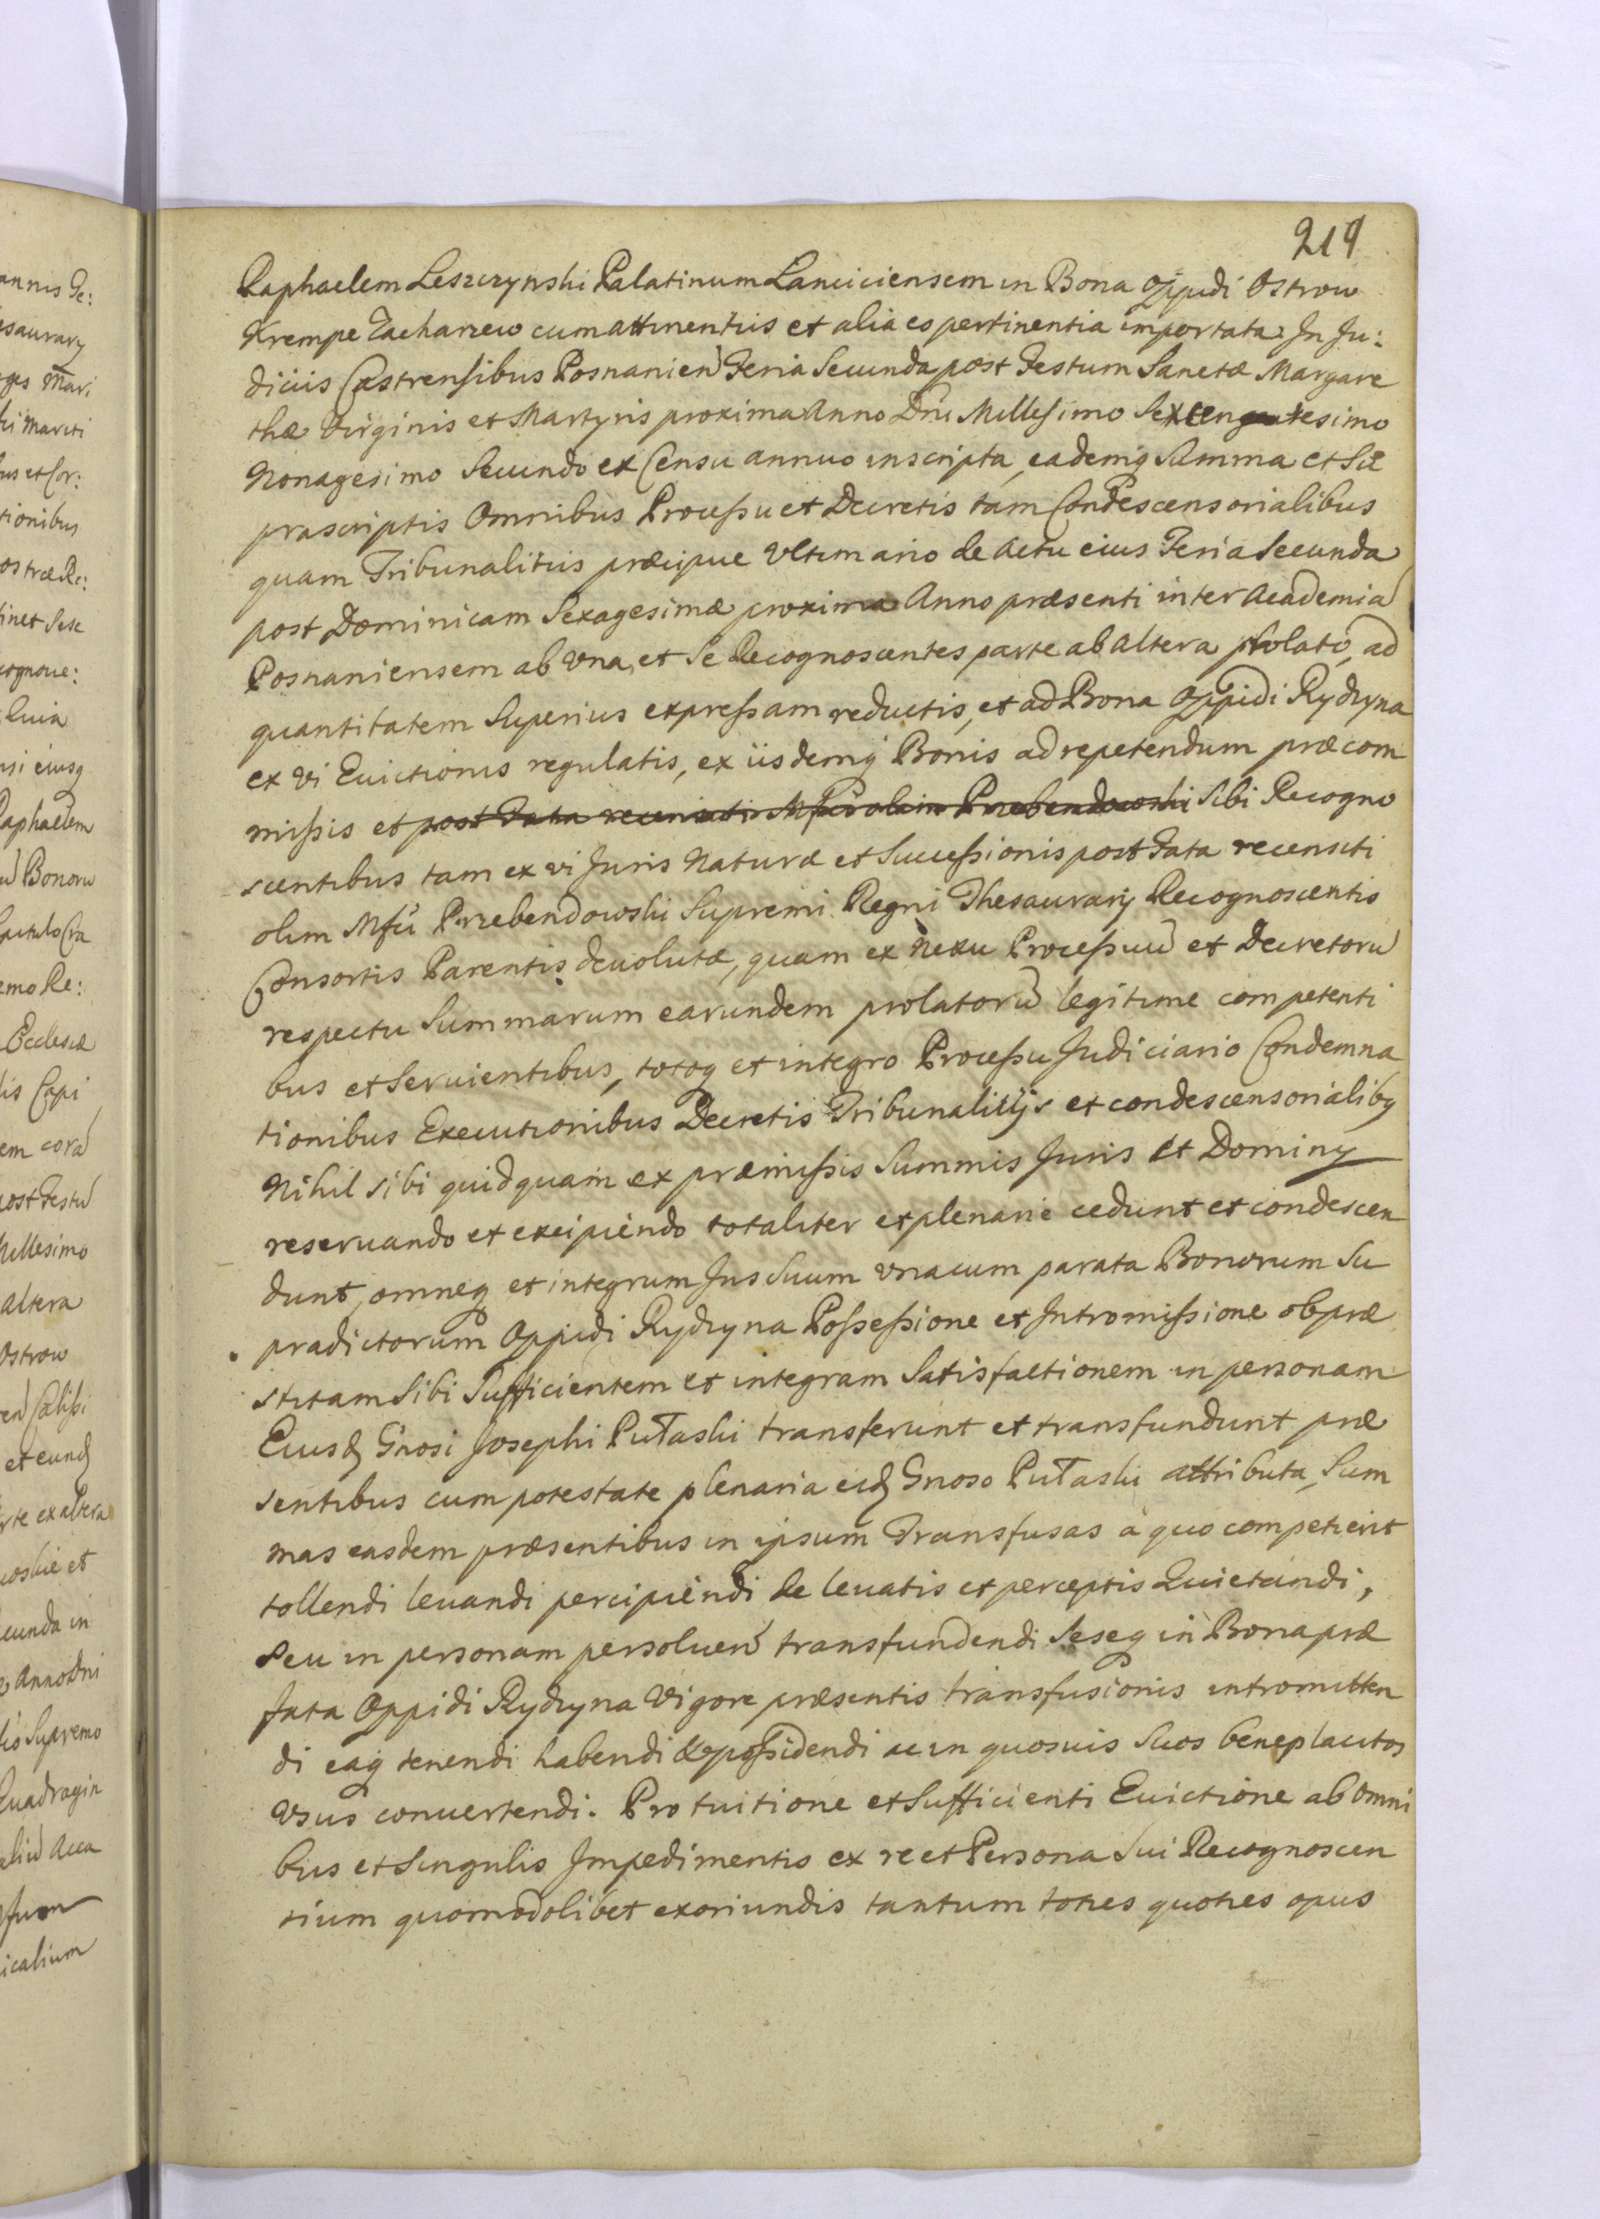 219
Raphaelem Leszczynski Palatinum Lanciciensem in Bona Oppidi Ostrow
Krempe Zacharzew cum attinentiis et alia eo pertinentia importata: In Ju:
diciis Castrensibus Posnanien Feria Secunda post Festum Sanctæ Margare
thæ Virginis et Martyris proxima Anno Dni Millesimo Sexcengentesimo
Nonagesimo Secundo ex Censu annuo inscripta, eademq Summa et Su
prascriptis Omnibus Processu et Decretis tam Condescensorialibus
quam Tribunalitiis præcipue Ultimario de Actu eius Feria Secunda
post Dominicam Sexagesimæ proxima Anno præsenti inter Academia
Posnaniensem ab Una, et Se Recognoscentes parte ab altera prolato, ad
quantitatem Superius expressam reductis, et ad Bona Oppidi Rydzyna
ex vi Evictionis regulatis, ex iisdemq Bonis ad repetendum præcom
missis et post Fata recensiti Mfci olim Przebendowski Sibi Recogno
scentibus tam ex vi Juris Naturæ et Successionis post Fata recensiti
olim Mfci Przebendowski Supremi Regni Thesaurarij Recognoscentis
Consortis Parentis devolutæ, quam ex Nexu Processuu et Decretoru
respectu Summarum earundem prolatoru legitime competenti
bus et Servientibus, totoq et integro Processu Judiciario Condemna
tionibus Executionibus Decretis Tribunalitijs et condescensorialibq
Nihil sibi quidquam ex præmissis Summis Juris et Dominy
reservando et excipiendo totaliter et plenarie cedunt et condescen
dunt, omneq et integrum Jus Suum unacum parata Bonorum Su
pradictorum Oppidi Rydzyna Possessione et Intromissione ob præ
stitam Sibi Sufficientem et integram Satisfactionem in personam
Eiusd Gnosi Josephi Pułaski transferunt et transfundunt præ
sentibus cum potestate plenaria eid Gnoso Pułaski attributa, Sum
mas easdem præsentibus in ipsum Transfusas à quo competierit
tollendi levandi percipiendi de levatis et perceptis Quietandi,
Seu in personam persoluen transfundendi Seseq in Bona præ
fata Oppidi Rydzyna Vigore præsentis transfusionis intromitten
di eaq tenendi habendi &possidendi ac in quosvis Suos beneplacitos
Usus convertendi. Pro tuitione et Sufficienti Evictione ab Omni
bus et Singulis Impedimentis ex re et Persona Sui Recognoscen
tium quomodolibet exoriundis tantum toties quoties opus